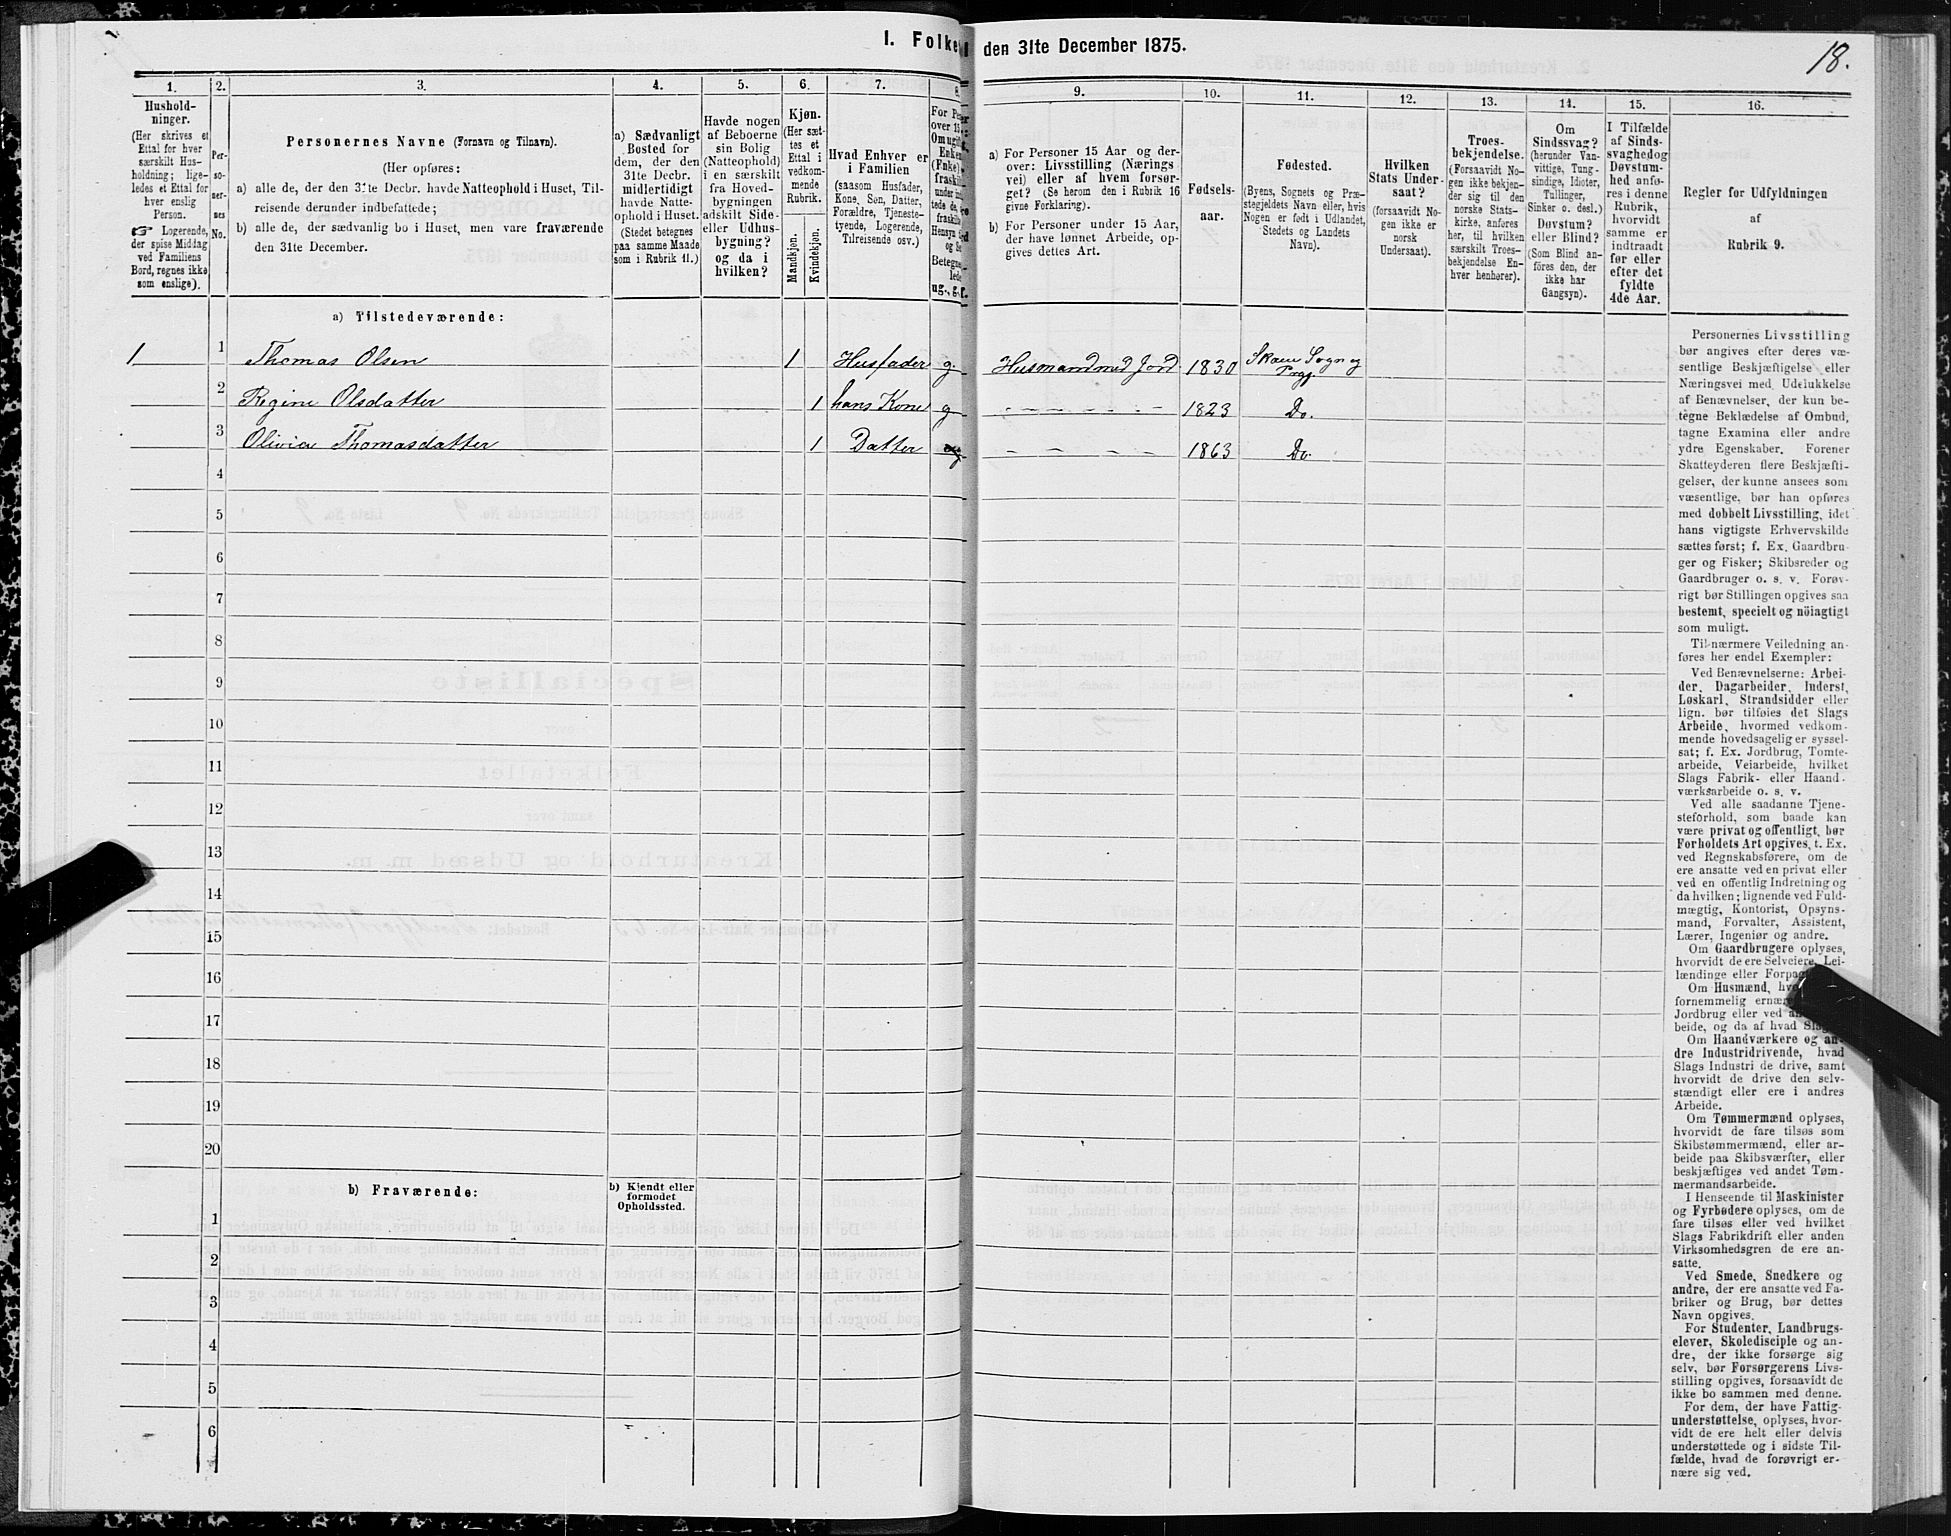 I. Folke
den 31te December 1875.
18.
1.
Hushold-
ninger.
(Her skrives et
Ettal for hver
særskilt Hus-
holdning; lige-
ledes et Ettal for
hver enslig
Person.
☞ Logerende,
der spise Middag
ved Familiens
Bord, regnes ikke
som enslige).
2.
Per-
so-
ner-
nes
No.
3.
Personernes Navne (Fornavn og Tilnavn).
(Her opføres:
a) alle de, der den 31te Decbr. havde Natteophold i Huset, Til-
reisende derunder indbefattede;
b) alle de, der sædvanlig bo i Huset, men vare fraværende
den 31te December.
4.
a) Sædvanligt
Bosted for
dem, der den
31te Decbr.
midlertidigt
havde Natte-
ophold i Huset.
(Stedet betegnes
paa samme Maade
som i Rubrik 11.)
5.
Havde nogen
af Beboerne
sin Bolig
(Natteophold)
i en særskilt
fra Hoved-
bygningen
adskilt Side-
eller Udhus-
bygning?
og da i
hvilken?
6.
Kjøn.
(Her sæt-
tes et
Ettal i
vedkom-
mende
Rubrik.
Mandkjøn.
Kvindekjøn.
7.
Hvad Enhver er
i Familien
(saasom Husfader,
Kone, Søn, Datter,
Forældre, Tjeneste-
tyende, Logerende,
Tilreisende osv.)
8.
ug., g.,
9.
a) For Personer 15 Aar og der-
over: Livsstilling (Nærings
vei) eller af hvem forsør-
get? (Se herom den i Rubrik 16
givne Forklaring).
b) For Personer under 15 Aar,
der have lønnet Arbeide, op-
gives dettes Art.
10.
Fødsels-
aar.
11.
Fødested.
(Byens, Sognets og Præ-
stegjeldets Navn eller, hvis
Nogen er født i Udlandet,
Stedets og Landets
Navn).
12.
Hvilken
Stats Under-
saat?
(forsaavidt No-
gen ikke er
norsk
Undersaat).
13.
Troes-
bekjendelse.
(Forsaavidt No-
gen ikke bekjen-
der sig til den
norske Stats-
kirke, anføres
her, til hvilken
særskilt Troes-
bekjendelse En-
hver henhører).
14.
Om
Sindssvag?
(herunder Van-
vittige, Tung-
sindige, Idioter,
Tullinger,
Sinker o. desl.)
Døvstum?
eller Blind?
(Som Blind an-
føres den, der
ikke har
Gangsyn).
15.
I Tilfælde
af Sinds-
svaghed og
Døvstum-
hed anfø-
res i denne
Rubrik,
hvorvidt
samme er
indtraadt
før eller
efter det
fyldte
4de Aar.
16.
Regler for Udfyldningen
af
Rubrik 9.
a) Tilstedeværende:
1 1 Thomas Olsen 1 Husfader g. Husmand med Jord 1830 Skaun Sogn og
Prgj.
2 Regine Olsdatter 1 hans Kone g 1823 Do.
3 Olivia Thomasdatter 1 Datter 1863 Do.
4
5
6
7
8
9
10
11
12
13
14
15
16
17
18
19
20
b) Fraværende:
b) Kjendt eller
formodet
Opholdssted.
1
2
3
4
5
6
Personernes Livsstilling
bør angives efter deres væ-
sentlige Beskjæftigelse eller
Næringsvei med Udelukkelse
af Benævnelser, der kun be-
tegne Beklædelse af Ombud,
tagne Examina eller andre
ydre Egenskaber. Forener
Skatteyderen flere Beskjæfti-
gelser, der kunne ansees som
væsentlige, bør han opføres
med dobbelt Livsstilling, idet
hans vigtigste Erhvervskilde
sættes først; f. Ex. Gaardbru-
ger og Fisker; Skibsreder og
Gaardbruger o. s. v. Forøv-
rigt bør Stillingen opgives saa
bestemt, specielt og nöiagtigt
som muligt.
Til nærmere Veiledning an-
føres her endel Exempler:
Ved Benævnelserne: Arbei-
der, Dagarbeider, Inderst,
Løskarl, Strandsidder eller
lign. bør tilføies det Slags
Arbeide, hvormed vedkom-
mende hovedsagelig er syssel-
sat; f. Ex. Jordbrug, Tomte-
arbeide, Veiarbeide, hvilket
Slags Fabrik- eller Haand-
værksarbeide o. s. v.
Ved alle saadanne Tjene-
steforhold, som baade kan
være privat og offentligt, bør
Forholdets Art opgives, f. Ex.
ved Regnskabsførere, om de
ere ansatte ved en privat eller
ved en offentlig Indretning og
da hvilken; lignende ved Fuld-
mægtig, Kontorist, Opsyns-
mand, Forvalter, Assistent,
Lærer, Ingeniør og andre.
Om Gaardbrugere oplyses,
hvorvidt de ere Selveiere, Lei-
lændinge eller
Om Husmænd,
fornemmelig
Jordbrug eller ved
beide, og da af hvad
Om Haandværkere og an-
dre Industridrivende, hvad
Slags Industri de drive, samt
hvorvidt de drive den selv-
stændigt eller ere i andres
Arbeide.
Om Tømmermænd oplyses,
hvorvidt de fare tilsøs som
Skibstømmermænd, eller ar-
beide paa Skibsværfter, eller
beskjæftiges ved andet Tøm-
mermandsarbeide.
I Henseende til Maskinister
og Fyrbødere oplyses, om de
fare tilsøs eller ved hvilket
Slags Fabrikdrift eller anden
Virksomhedsgren de ere an-
satte.
Ved Smede, Snedkere og
andre, der ere ansatte ved Fa-
briker og Brug, bør dettes
Navn opgives.
For Studenter, Landbrugs-
elever, Skoledisciple og an-
dre, der ikke forsørge sig
selv, bør Forsørgerens Livs-
stilling opgives, forsaavidt de
ikke bo sammen med denne.
For dem, der have Fattig-
understøttelse, oplyses, hvor-
vidt de ere helt eller delvis
understøttede og i sidste Til-
fælde, hvad de forøvrigt er-
nære sig ved.